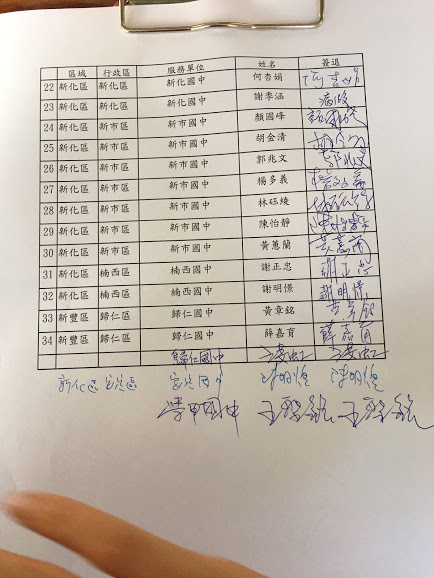 區域 行政區 服務單位 姓名 簽退
22 新化區 新化區 新化國中 何杏娟 何杏娟
23 新化區 新化區 新化國中 謝季涵 病假
24 新化區 新市區 新市國中 顏國峰 顏國峰
25 新化區 新市區 新市國中 胡金清
26 新化區 新市區 新市國中 郭兆文 郭兆文
27 新化區 新市區 新市國中 楊多義 楊多義
28 新化區 新市區 新市國中 林砡綾
29 新化區 新市區 新市國中 陳怡靜 陳怡靜
30 新化區 新市區 新市國中 黃蕙蘭 黃蕙蘭
31 新化區 楠西區 楠西國中 謝正忠 謝正忠
32 新化區 楠西區 楠西國中 謝明憬 謝明憬
33 新豐區 歸仁區 歸仁國中 黃章銘 黃章銘
34 新豐區 歸仁區 歸仁國中 薛嘉育 薛嘉育
歸仁國中
新化區 國中 陳明 陳明
學甲國中 王 銘 王 銘